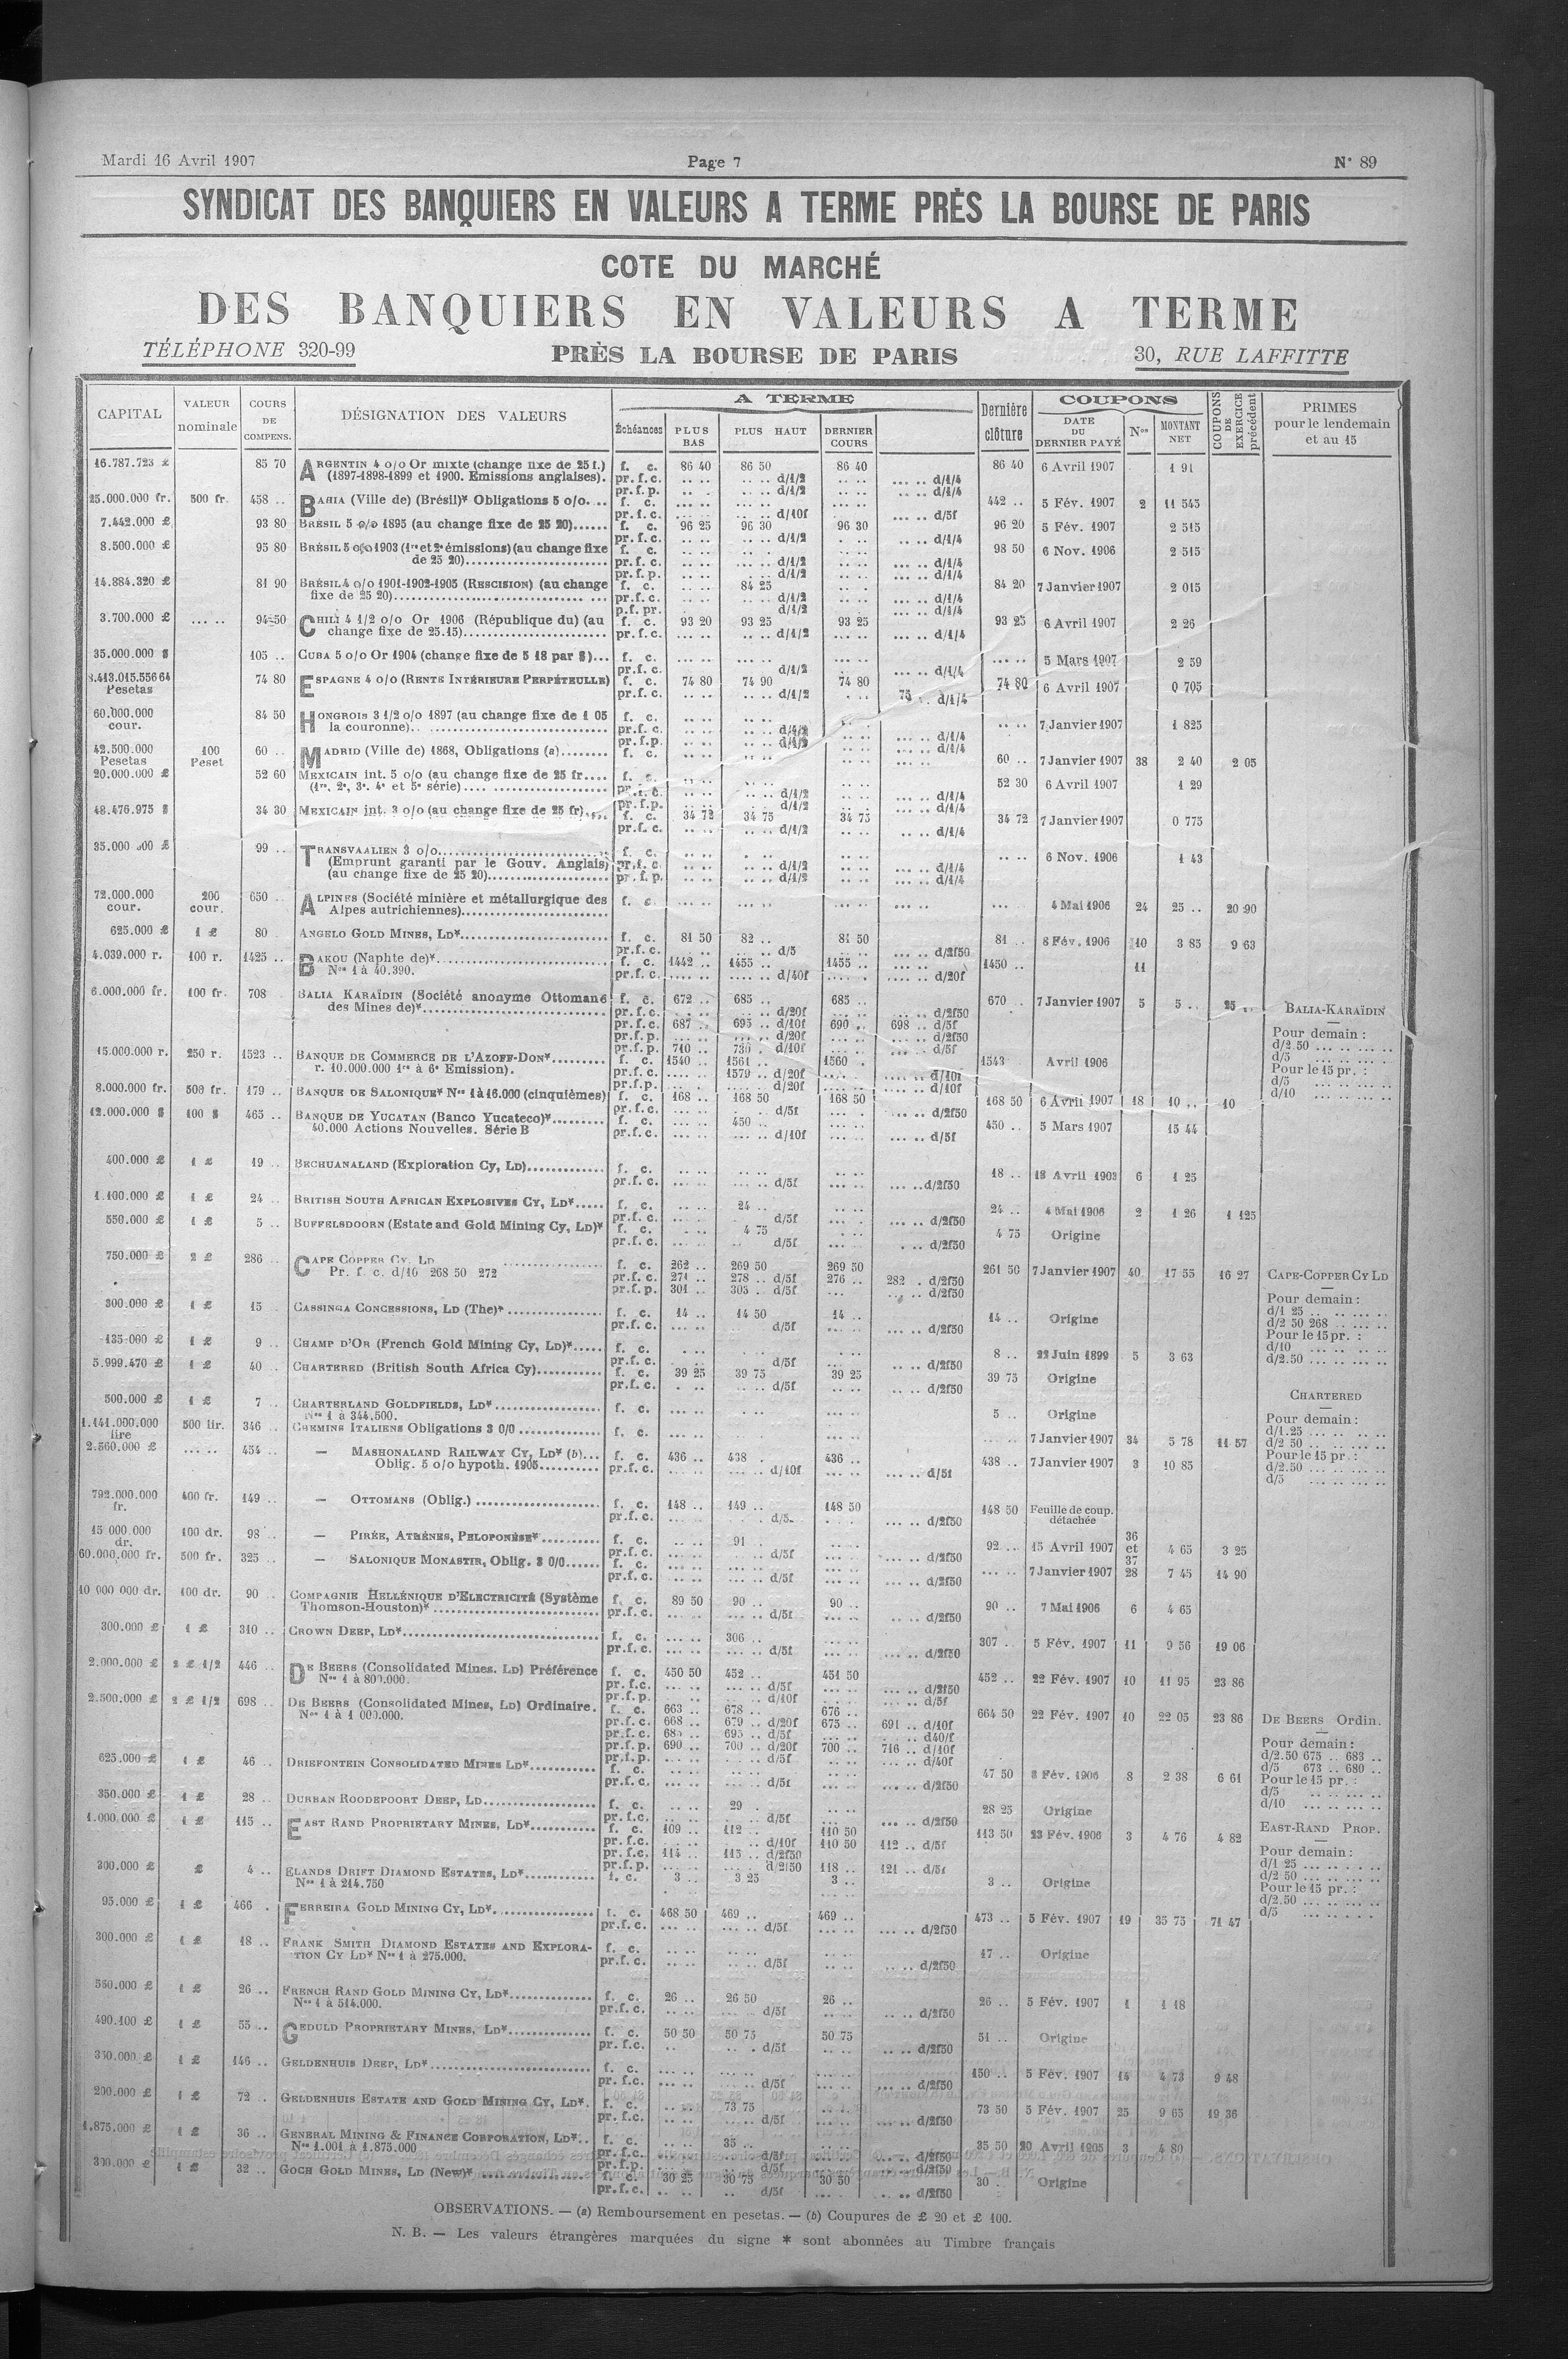 Mardi 16 Avril 1907 Page 7 N° 89
SYNDICAT DES BANQUIERS EN VALEURS A TERME PRÈS LA BOURSE DE PARIS
COTE DU MARCHÉ
DES BANQUIERS EN VALEURS A TERME
TÉLÉPHONE 320-99 PRÈS LA BOURSE DE PARIS 30, RUE LAFFITTE
CAPITAL VALEUR nominale COURS DE COMPENS. DÉSIGNATION DES VALEURS A TERME Échéances PLUS BAS PLUS HAUT DERNIER COURS Dernière clôture COUPONS DATE DU DERNIER PAYÉ Nos MONTANT NET COUPONS DE EXERCICE précédent PRIMES pour le lendemain et au 15
16.787.723 £ 85 70 ARGENTIN 4 o/o Or mixte (change fixe de 25 f.) f. c. 86 40 86 50 86 40 86 40 6 Avril 1907 1 91
(1897-1898-1899 et 1900. Emissions anglaises). pr.f.c. .. .. d/1/2 d/1/4
pr.f.p. d/1/2 d/1/4
25.000.000 fr. 500 fr. 458 .. BAHIA (Ville de) (Brésil)* Obligations 5 o/o. .. f. c. 442 .. 5 Fév. 1907 2 11 545
pr.f.c. d/10f d/5f
7.442.000 £ 93 80 BRÉSIL 5 o/o 1895 (au change fixe de 25 20)...... f. c. 96 25 96 30 96 30 96 20 5 Fév. 1907 2 515
pr.f.c. d/1/2 d/1/4
8.500.000 £ 95 80 BRÉSIL 5 o/o 1903 (1re et 2e émissions) (au change fixe f. c. 98 50 6 Nov. 1906 2 515
de 25 20)........ pr.f.c. d/1/2 d/1/4
pr.f.p. d/1/2 d/1/4
14.884.320 £ 81 90 BRÉSIL 4 o/o 1901-1902-1905 (RESCISION) (au change f. c. 84 25 84 20 7 Janvier 1907 2 015
fixe de 25 20)........ pr.f.c. d/1/2 d/1/4
p.f. pr. d/1/2 d/1/4
3.700.000 £ ... .. 94 50 CHILI 4 1/2 o/o Or 1906 (République du) (au f. c. 93 20 93 25 93 25 93 25 6 Avril 1907 2 26
change fixe de 25.15)........ pr.f.c. d/1/2 d/1/4
35.000.000 $ 105 .. CUBA 5 o/o Or 1904 (change fixe de 5 18 par $)... f. c. 5 Mars 1907 2 59
pr.f.c. d/1/2 d/1/4
Pesetas 74 80 ESPAGNE 4 o/o (RENTE INTÉRIEURE PERPÉTEULLE) f. c. 74 80 74 90 74 80 74 80 6 Avril 1907 0 705
pr.f.c. d/1/2 75 .. d/1/4
60.000.000 cour. 84 50 HONGROIS 3 1/2 o/o 1897 (au change fixe de 1 05 f. c. 7 Janvier 1907 1 825
la couronne).. ........ pr.f.c. d/1/2 d/1/4
pr.f.p. d/1/2 d/1/4
42.500.000 Pesetas 100 Peset 60 .. MADRID (Ville de) 1868, Obligations (a)........ f. c. 60 .. 7 Janvier 1907 38 2 40 2 05
20.000.000 £ 52 60 MEXICAIN int. 5 o/o (au change fixe de 25 fr.... f. c. 52 30 6 Avril 1907 1 29
(1re, 2e, 3e, 4e et 5e série)........ pr.f.c. d/1/2 d/1/4
pr.f.p. d/1/2 d/1/4
48.476.975 $ 34 30 MEXICAIN int. 3 o/o (au change fixe de 25 fr)..... f. c. 34 72 34 75 34 75 34 72 7 Janvier 1907 0 775
pr.f.c. d/1/2 d/1/4
35.000 £ 99 .. TRANSVAALIEN 3 o/o........ f. c. 6 Nov. 1906 1 43
(Emprunt garanti par le Gouv. Anglais) pr.f.c. d/1/2 d/1/4
(au change fixe de 25 20)........ pr.f.p. d/1/2 d/1/4
72.000.000 cour. 200 cour. 650 .. ALPINES (Société minière et métallurgique des f. c. 4 Mai 1906 24 25 .. 20 90
Alpes autrichiennes)........
625.000 £ 1 £ 80 ANGELO GOLD MINES, LD*........ f. c. 81 50 82 .. 81 50 81 .. 8 Fév. 1906 10 3 85 9 63
pr.f.c. d/5 d/2f50
4.039.000 r. 100 r. 1425 .. BAKOU (Naphte de)*........ f. c. 1442 .. 1455 .. 1455 .. 1450 .. 11
Nos 1 à 40.390. pr.f.c. d/40f d/20f
6.000.000 fr. 100 fr. 708 BALIA KARAÏDIN (Société anonyme Ottomane f. c. 672 .. 685 .. 685 .. 670 .. 7 Janvier 1907 5 5 .. 25 .. BALIA-KARAÏDIN
des Mines de)*........ pr.f.c. d/20f d/2f50
pr.f.c. 687 .. 695 .. d/10f 690 .. 698 .. d/5f Pour demain :
pr.f.p. d/20f d/2f50 d/2 50
pr.f.p. 710 .. 730 . d/10f d/5f d/5
15.000.000 r. 250 r. 1523 .. BANQUE DE COMMERCE DE L'AZOFF-DON*........ f. c. 1540 .. 1561 .. 1560 . 1543 Avril 1906 Pour le 15 pr. :
r. 10.000.000 1re à 6e Emission). pr.f.c. 1579 .. d/20f d/10f d/5
pr.f.p. d/20f d/10f d/10
8.000.000 fr. 500 fr. 179 .. BANQUE DE SALONIQUE* Nos 1 à 16.000 (cinquièmes) f. c. 168 .. 168 50 168 50 168 50 6 Avril 1907 18 10 .. 10
pr.f.c. d/5f d/2f50
12.000.000 $ 100 $ 465 .. BANQUE DE YUCATAN (Banco Yucateco)*........ f. c. 450 .. 450 .. 5 Mars 1907 15 44
40.000 Actions Nouvelles. Série B pr.f.c. d/10f d/5f
400.000 £ 1 £ 19 .. BECHUANALAND (Exploration Cy, LD)........ f. c. 18 .. 18 Avril 1902 6 1 25
pr.f.c. d/5f d/2f50
1.100.000 £ 1 £ 24 .. BRITISH SOUTH AFRICAN EXPLOSIVES CY, LD*..... f. c. 24 .. 24 .. 4 Mai 1906 2 1 26 1 125
pr.f.c. d/5f d/2f50
550.000 £ 1 £ 5 .. BUFFELSDOORN (Estate and Gold Mining Cy, LD)* f. c. 4 75 4 75 Origine
pr.f.c. d/5f d/2f50
750.000 £ 2 £ 286 .. CAPE COPPER CY, LD ........ f. c. 262 .. 269 50 269 50 261 50 7 Janvier 1907 40 17 55 16 27 CAPE-COPPER CY LD
Pr. f. c. d/10 268 50 272 pr.f.c. 271 .. 278 .. d/5f 276 .. 282 . d/2f50
pr.f.p. 301 .. 303 .. d/5f d/2f50 Pour demain :
300.000 £ 1 £ 15 .. CASSINGA CONCESSIONS, LD (The)*........ f. c. 14 .. 14 50 14 .. 14 .. Origine d/1 25
pr.f.c. d/5f d/2f50 d/2 50 268
135.000 £ 1 £ 9 .. CHAMP D'OR (French Gold Mining Cy, LD)*..... f. c. 8 .. 22 Juin 1899 5 3 63 Pour le 15 pr. :
pr.f.c. d/5f d/2f50 d/10
5.999.470 £ 1 £ 40 .. CHARTERED (British South Africa Cy)........ f. c. 39 25 39 75 39 25 39 75 Origine d/2.50
pr.f.c. d/5f d/2f50
500.000 £ 1 £ 7 .. CHARTERLAND GOLDFIELDS, LD*........ f. c. 5 .. Origine CHARTERED
Nos 1 à 344.500. Pour demain :
1.141.000.000 lire 500 lir. 346 .. CHEMINS ITALIENS Obligations 3 0/0........ f. c. 7 Janvier 1907 34 5 78 11 57 d/1.25
2.560.000 £ ... .. 454 .. — MASHONALAND RAILWAY CY, LD* (b)... f. c. 436 .. 438 . 436 .. 438 .. 7 Janvier 1907 3 10 85 d/2 50
Oblig. 5 o/o hypoth. 1905........ pr.f.c. d/10f d/5f Pour le 15 pr. :
d/2.50
d/5
792.000.000 fr. 400 fr. 149 .. — OTTOMANS (Oblig.)........ f. c. 148 .. 149 .. 148 50 148 50 Feuille de coup. détachée
pr.f.c. d/5 d/2f50
15 000 000 dr. 100 dr. 98 .. — PIRÉE, ATHÈNES, PELOPONÈSE*........ f. c. 91 .. 92 .. 15 Avril 1907 36 et 37 4 65 3 25
pr.f.c. d/5f d/2f50
60.000.000 fr. 500 fr. 325 .. — SALONIQUE MONASTIR, Oblig. 3 0/0...... f. c. 7 Janvier 1907 28 7 45 14 90
pr.f.c. d/5f d/2f50
10 000 000 dr. 100 dr. 90 .. COMPAGNIE HELLÉNIQUE D'ELECTRICITÉ (Système f. c. 89 50 90 .. 90 .. 90 .. 7 Mai 1906 6 4 65
Thomson-Houston)*........ pr.f.c. d/5f d/2f50
300.000 £ 1 £ 310 .. CROWN DEEP, LD*........ f. c. 306 .. 307 .. 5 Fév. 1907 11 9 56 19 06
pr.f.c. d/5f d/2f50
2.000.000 £ 2 £ 1/2 446 .. DE BEERS (Consolidated Mines. LD) Préférence f. c. 450 50 452 .. 451 50 452 .. 22 Fév. 1907 10 11 95 23 86
Nos 1 à 800.000. pr.f.c. d/5f d/2f50
pr.f.p. d/10f d/5f
2.500.000 £ 2 £ 1/2 698 .. DE BEERS (Consolidated Mines, LD) Ordinaire. f. c. 663 .. 678 .. 676 .. 664 50 22 Fév. 1907 10 22 05 23 86 DE BEERS Ordin.
Nos 1 à 1 000.000. pr.f.c. 668 .. 679 .. d/20f 675 .. 691 .. d/10f
pr.f.c. 695 .. d/5f d40/f Pour demain :
pr.f.p. 690 .. 700 .. d/20f 700 .. 716 .. d/10f d/2.50 675 .. 683 ..
pr.f.p. d/5f d/40f d/5 673 .. 680 ..
625.000 £ 1 £ 46 .. DRIEFONTEIN CONSOLIDATED MINES LD*........ f. c. 47 50 8 Fév. 1906 8 2 38 6 61 Pour le 15 pr. :
pr.f.c. d/5f d/2f50 d/5
350.000 £ 1 £ 28 .. DURBAN ROODEPOORT DEEP, LD........ f. c. 29 . 28 25 Origine d/10
pr.f.c. d/5f d/2f50
1.000.000 £ 1 £ 115 .. EAST RAND PROPRIETARY MINES, LD*........ f. c. 109 .. 112 .. 110 50 113 50 23 Fév. 1906 3 4 76 4 82 EAST-RAND PROP.
pr.f.c. d/10f 110 50 112 .. d/5f
pr.f.c. 114 .. 115 .. d/2f50 Pour demain :
pr.f.p. d/2f50 118 .. 121 .. d/5f d/1 25
300.000 £ £ 4 .. ELANDS DRIFT DIAMOND ESTATES, LD*........ f. c. 3 .. 3 25 3 .. 3 .. Origine d/2 50
Nos 1 à 214.750 Pour le 15 pr. :
d/2.50
95.000 £ 1 £ 466 . FERREIRA GOLD MINING CY, LD*........ f. c. 468 50 469 .. 469 .. 473 .. 5 Fév. 1907 19 35 75 71 47 d/5
pr.f.c. d/5f d/2f50
300.000 £ 1 £ 18 .. FRANK SMITH DIAMOND ESTATES AND EXPLORA- f. c. 17 .. Origine
TION CY LD* Nos 1 à 275.000. pr.f.c. d/5f d/2f50
550.000 £ 1 £ 26 .. FRENCH RAND GOLD MINING CY, LD*........ f. c. 26 .. 26 50 26 .. 26 .. 5 Fév. 1907 1 1 18
Nos 1 à 514.000. pr.f.c. d/5f d/2f50
490.100 £ 1 £ 55 .. GEDULD PROPRIETARY MINES, LD*........ f. c. 50 50 50 75 50 75 51 .. Origine
pr.f.c. d/5f d/2f50
1 £ 146 .. GELDENHUIS DEEP, LD*........ f. c. 150 .. 5 Fév. 1907 14 4 73 9 48
pr.f.c. d/5f d/2f50
200.000 £ 1 £ 72 .. GELDENHUIS ESTATE AND GOLD MINING CY, LD*. f. c. 73 75 73 50 5 Fév. 1907 25 9 65 19 36
pr.f.c. d/5f d/2f50
1.875.000 £ 1 £ 36 .. GENERAL MINING & FINANCE CORPORATION, LD*.. f. c. 35 .. 35 50 20 Avril 1905 3 4 80
Nos 1.001 à 1.875.000 pr.f.c. d/5f d/2f50
pr.f.p. d/5f d/2f50
300.000 £ 1 £ 32 .. GOCH GOLD MINES, LD (New)*........ f. c. 30 25 30 75 30 50 30 .. Origine
pr.f.c. d/5f d/2f50
OBSERVATIONS. — (a) Remboursement en pesetas. — (b) Coupures de £ 20 et £ 100.
N. B. — Les valeurs étrangères marquées du signe * sont abonnées au Timbre français